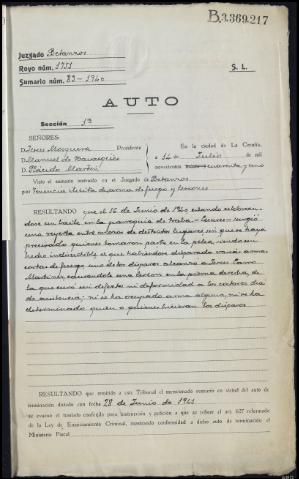 B.3.369.217
Juzgado Betanzos
Royo núm. 1751
S. L.
Sumario núm. 83-1940
AUTO
Sección 1ª
SEÑORES:
D. Presidente
D. Manuel de
D. Plácido Martín
En la ciudad de La Coruña,
a 14 de Julio de mil
novecientos cuarenta y uno
Visto el sumario instruido en el Juzgado de Betanzos
por Tenencia ilícita de arma de fuego y lesiones
RESULTANDO que el 16 de Junio de 1940 estando celebran-
dose un baile en la parroquia de surgió
una reyerta entre mozos de distintos lugares sin que se haya
precisado quienes tomaron parte en la pelea, siendo un
hecho indiscutible el que habiéndose disparado varias armas
cortas de fuego uno de los disparos alcanzo a
Martínez causandole una lesion en la pierna derecha, de
la que curó sin defecto ni deformidad a los catorce dias
de asistencia; ni se ha ocupado arma alguna, ni se ha
determinado quien o quienes hicieran los disparos
RESULTANDO que remitido a este Tribunal el mencionado sumario en virtud del auto de
terminación dictado con fecha 28 de Junio de 1941
se evacuó el traslado conferido para instrucción y petición a que se refiere el art. 627 reformado
de la Ley de Enjuiciamiento Criminal, mostrando conformidad a dicho auto de terminación el
Ministerio Fiscal